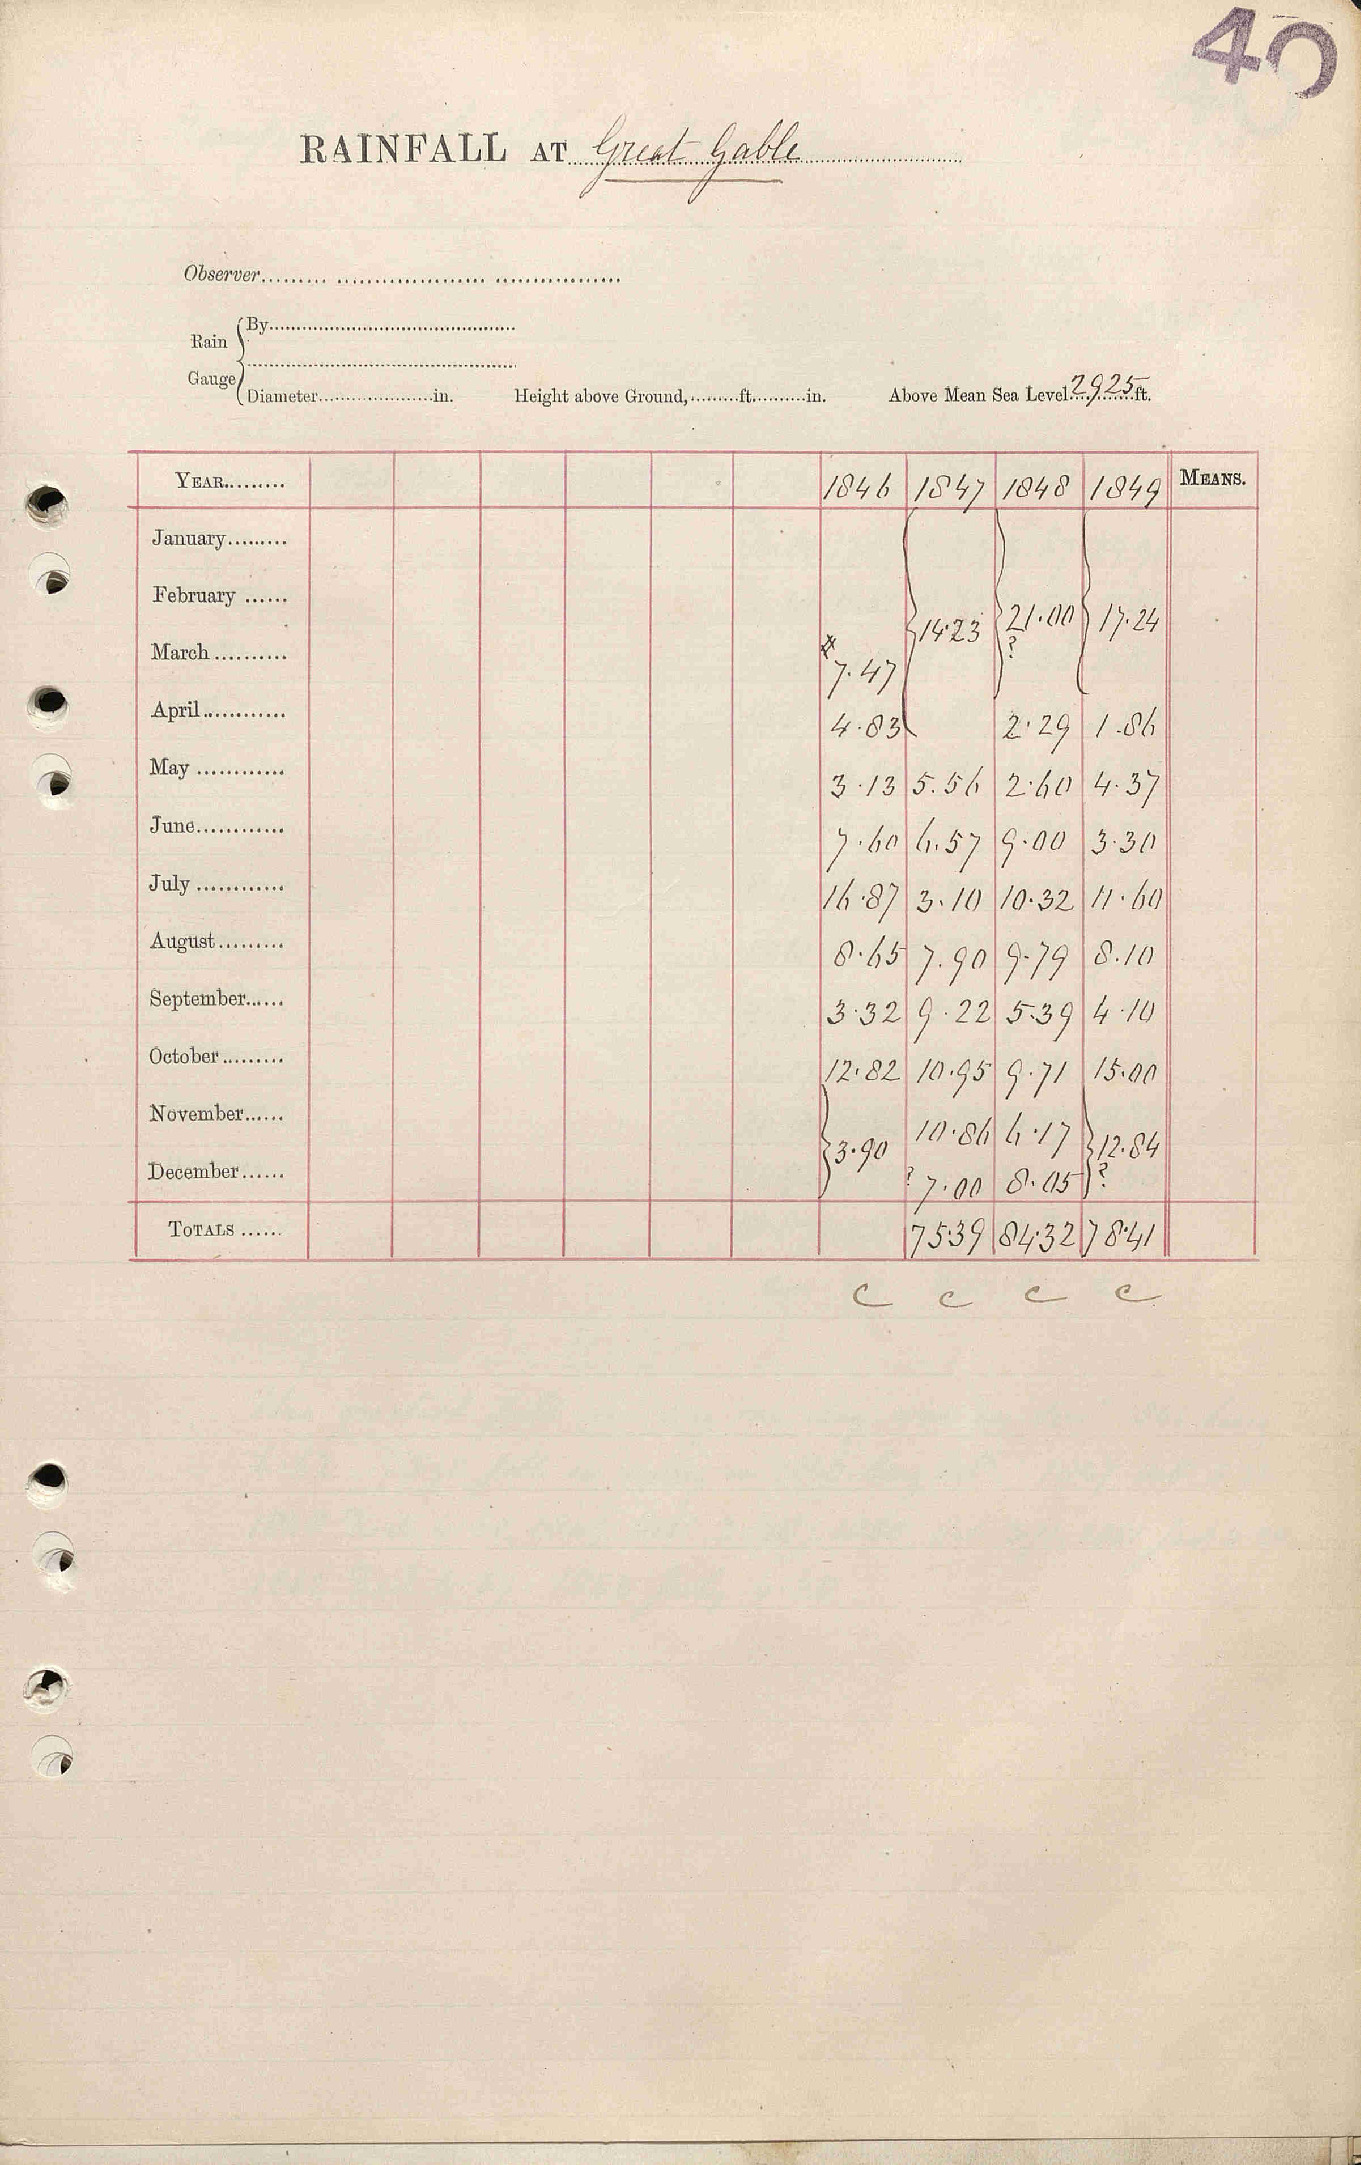 40
RAINFALL AT Great Gable
Observer
Rain Gauge
By
Diameter in. Height above Ground, ft. in. Above Mean Sea Level 2925 ft.
YEAR 1846 1847 1848 1849 MEANS.
January
February 14.23 21.00 ? 17.24
March * 7.47
April 4.83 2.29 1.86
May 3.13 5.56 2.60 4.37
June 7.60 6.57 9.00 3.30
July 16.87 3.10 10.32 11.60
August 8.65 7.90 9.79 8.10
September 3.32 9.22 5.39 4.10
October 12.82 10.95 9.71 15.00
November 3.90 10.86 6.17 12.84 ?
December ? 7.00 8.05
TOTALS 75.39 84.32 78.41
C C C C